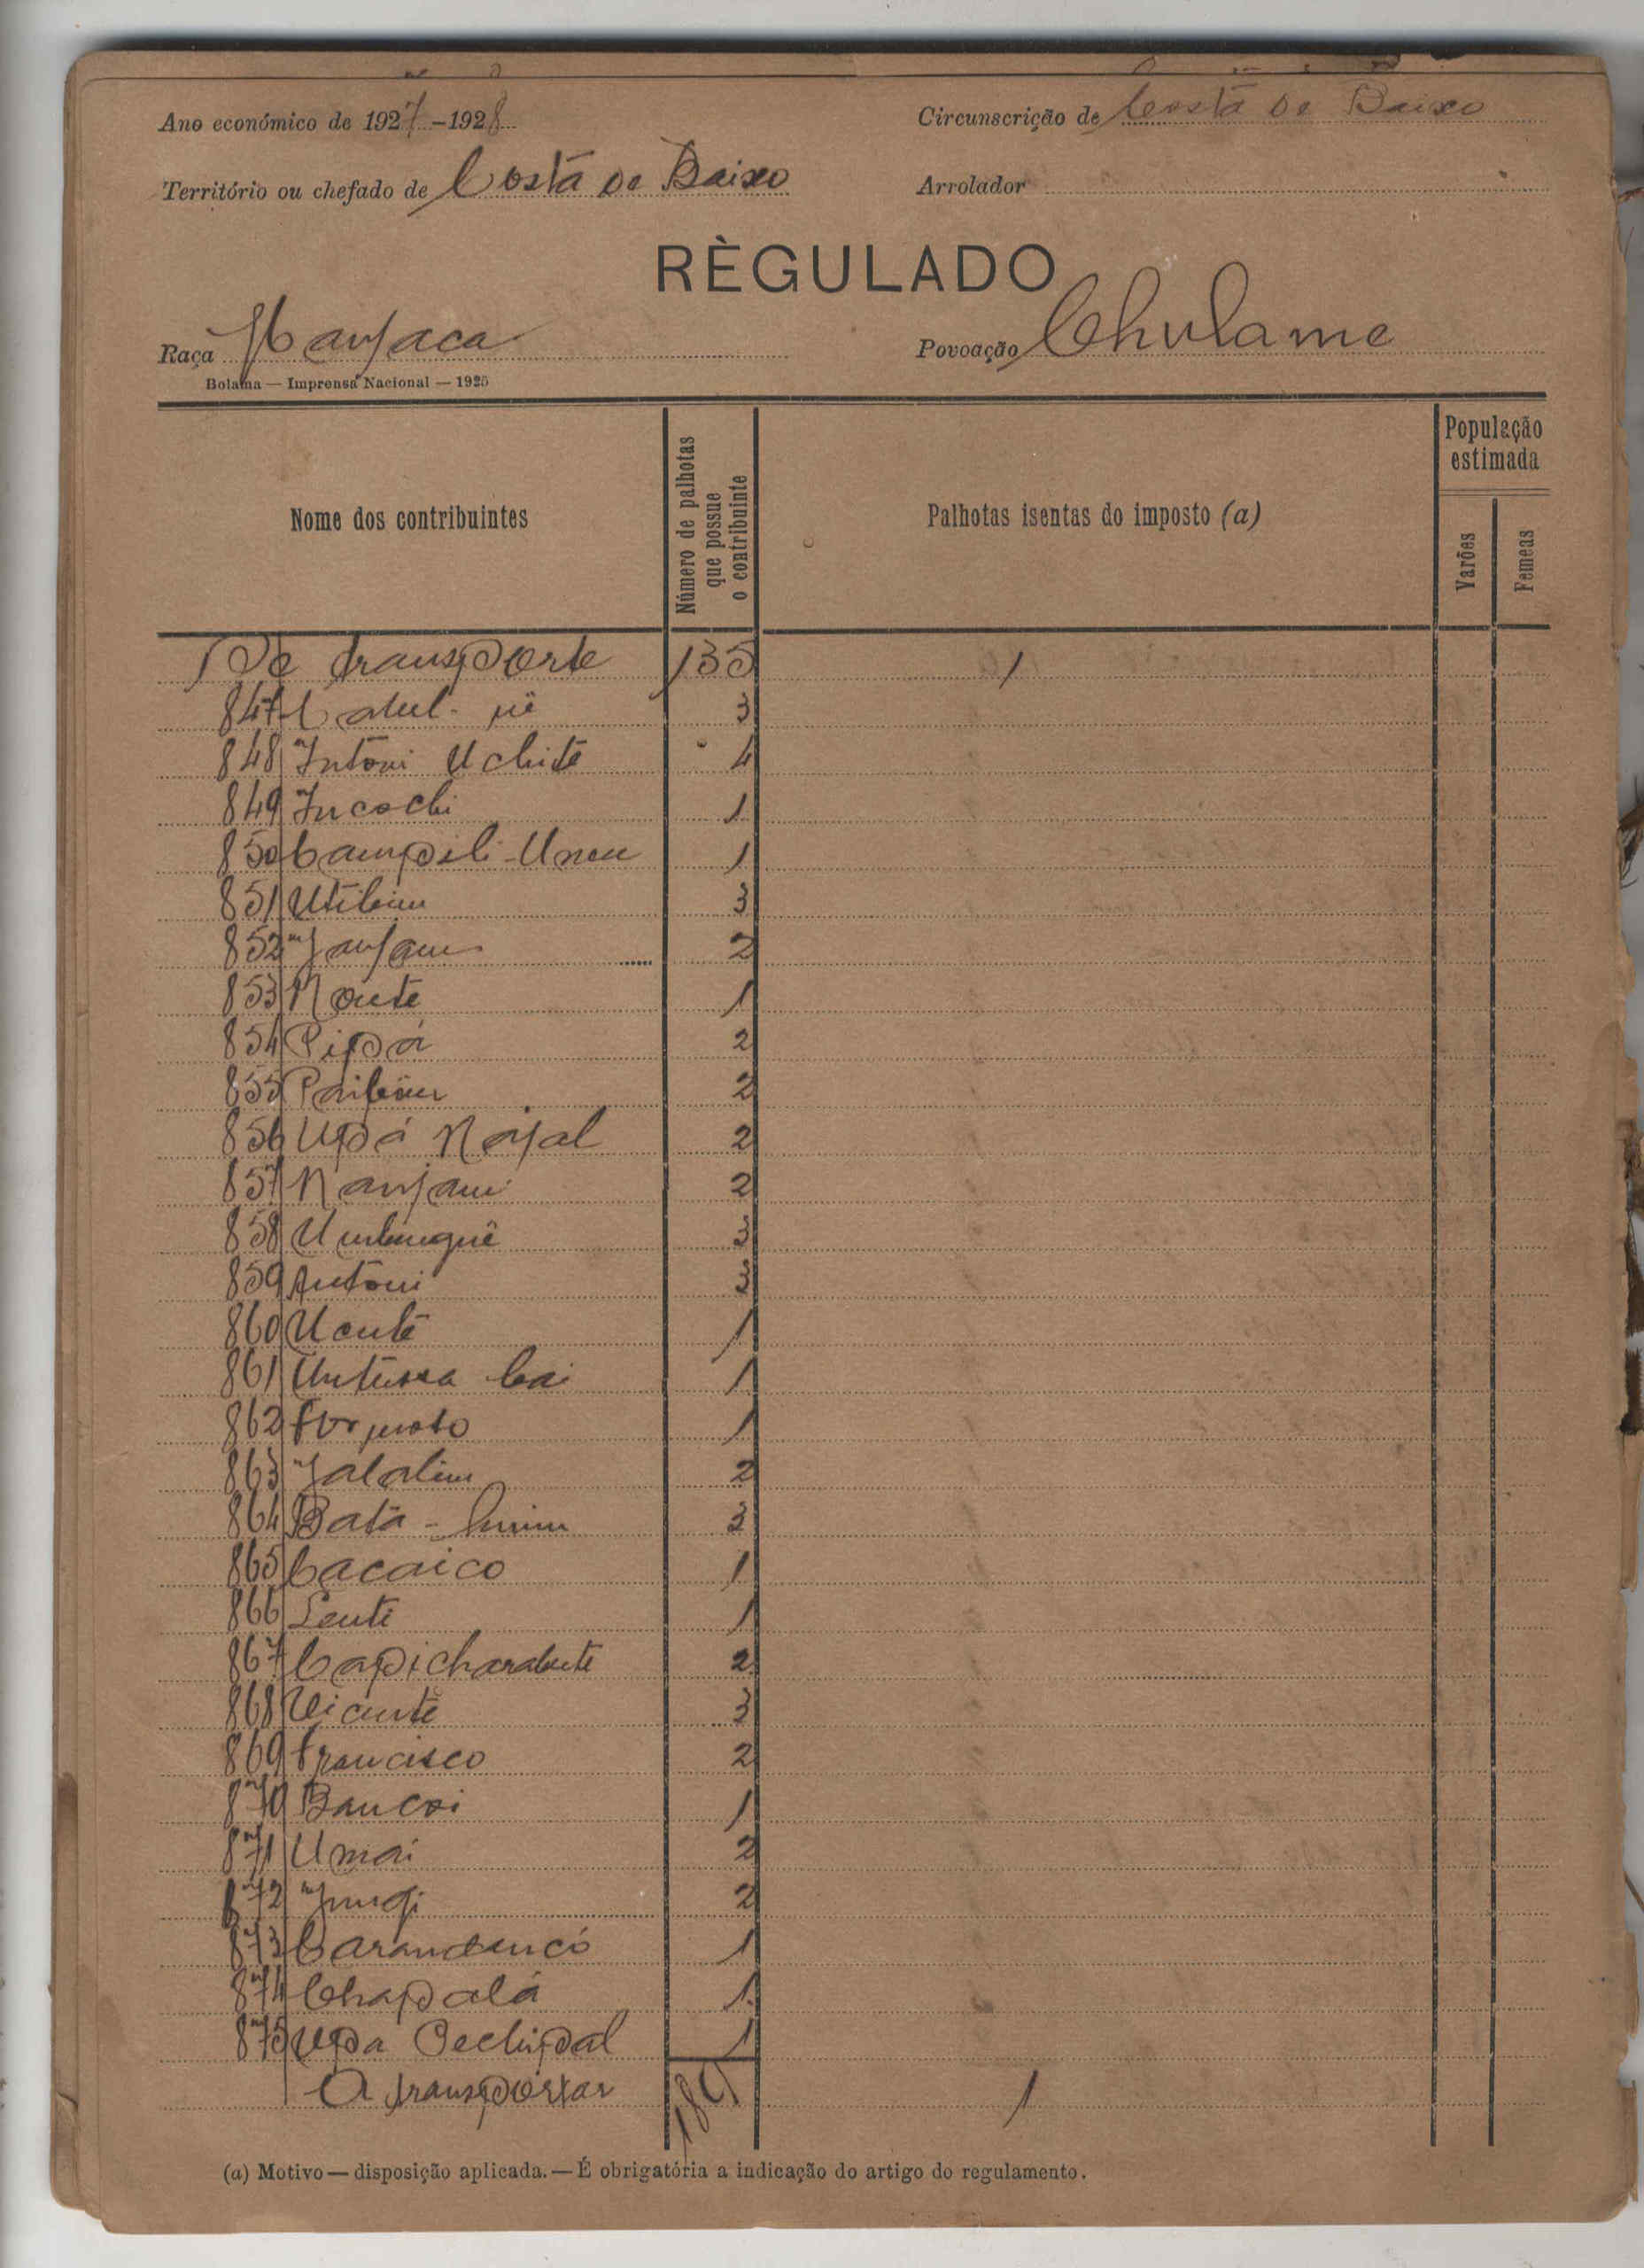 Ano económico de 1927-1928 Circunscrição de Costa de Baixo
Território ou chefado de Costa de Baixo Arrolador
RÈGULADO
Raça Manjaca Povoação Chulame
Bolama — Imprensa Nacional — 1925
Nome dos contribuintes Número de palhotas que possue o contribuinte Palhotas isentas do imposto (a) População estimada Varões Femeas
De transporte 135 1
847 3
848 Intoni Uchite 4
849 Incochi 1
850 Campili - Uncu 1
851 Utibim 3
852 Janjam 2
853 Noute 1
854 Pipá 2
855 2
856 Upá Najal 2
857 Nanjam 2
858 Umbunguê 3
859 Antoni 3
860 Ucute 1
861 Untussa Cai 1
862 1
863 Jalalim 2
864 Bata - 3
865 Cacaico 1
866 Lenti 1
867 2
868 Vicente 3
869 Francisco 2
870 Bancoi 1
871 Umai 2
872 2
873 1
874 Chapalá 1
875 Upa 1
A transportar 189 1
(a) Motivo — disposição aplicada. — É obrigatória a indicação do artigo do regulamento.